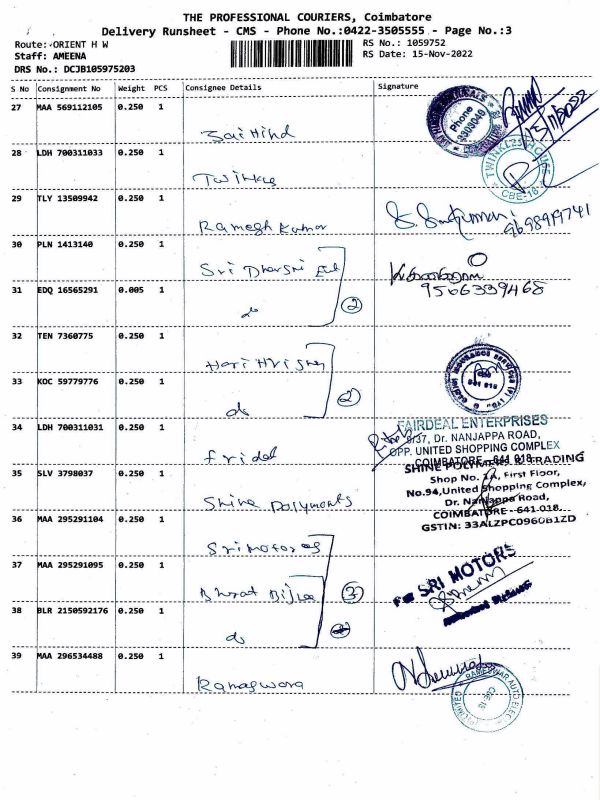 THE PROFESSIONAL COURIERS, Coimbatore
Delivery Runsheet - CMS - Phone No.:0422-3505555 - Page No.:3
Route: ORIENT H W
RS No.: 1059752
Staff: AMEENA
RS Date: 15-Nov-2022
DRS No.: DCJB105975203
S No Consignment No Weight PCS Consignee Details Signature
27 MAA 569112105 0.250 1
Jai Hind
Phone
15/11/2022
28 LDH 700311033 0.250 1
Twinkle
TWINKLES HOUSE
CBE-18
29 TLY 13509942 0.250 1
Ramesh Kumar
9698919741
30 PLN 1413140 0.250 1
Sri Dharsri
31 EDQ 16565291 0.005 1
do
2
9566339468
32 TEN 7360775 0.250 1
33 KOC 59779776 0.250 1
do
2
34 LDH 700311031 0.250 1
Fridal
FAIRDEAL ENTERPRISES
9/37, Dr. NANJAPPA ROAD,
OPP. UNITED SHOPPING COMPLEX
COIMBATORE - 641 018
35 SLV 3798037 0.250 1
Shine Polyments
SHINE POLYMERS & TRADING
Shop No. 1A, First Floor,
No.94,United Shopping Complex,
Dr. Nanjappa Road,
COIMBATORE - 641 018.
GSTIN: 33ALZPC0960B1ZD
36 MAA 295291104 0.250 1
Sri Motores
37 MAA 295291095 0.250 1
Bharat Bijlee
3
For SRI MOTORS
38 BLR 2150592176 0.250 1
do
39 MAA 296534488 0.250 1
Ramaswara
RAMESWAR AUTO ELEC
CBE-18